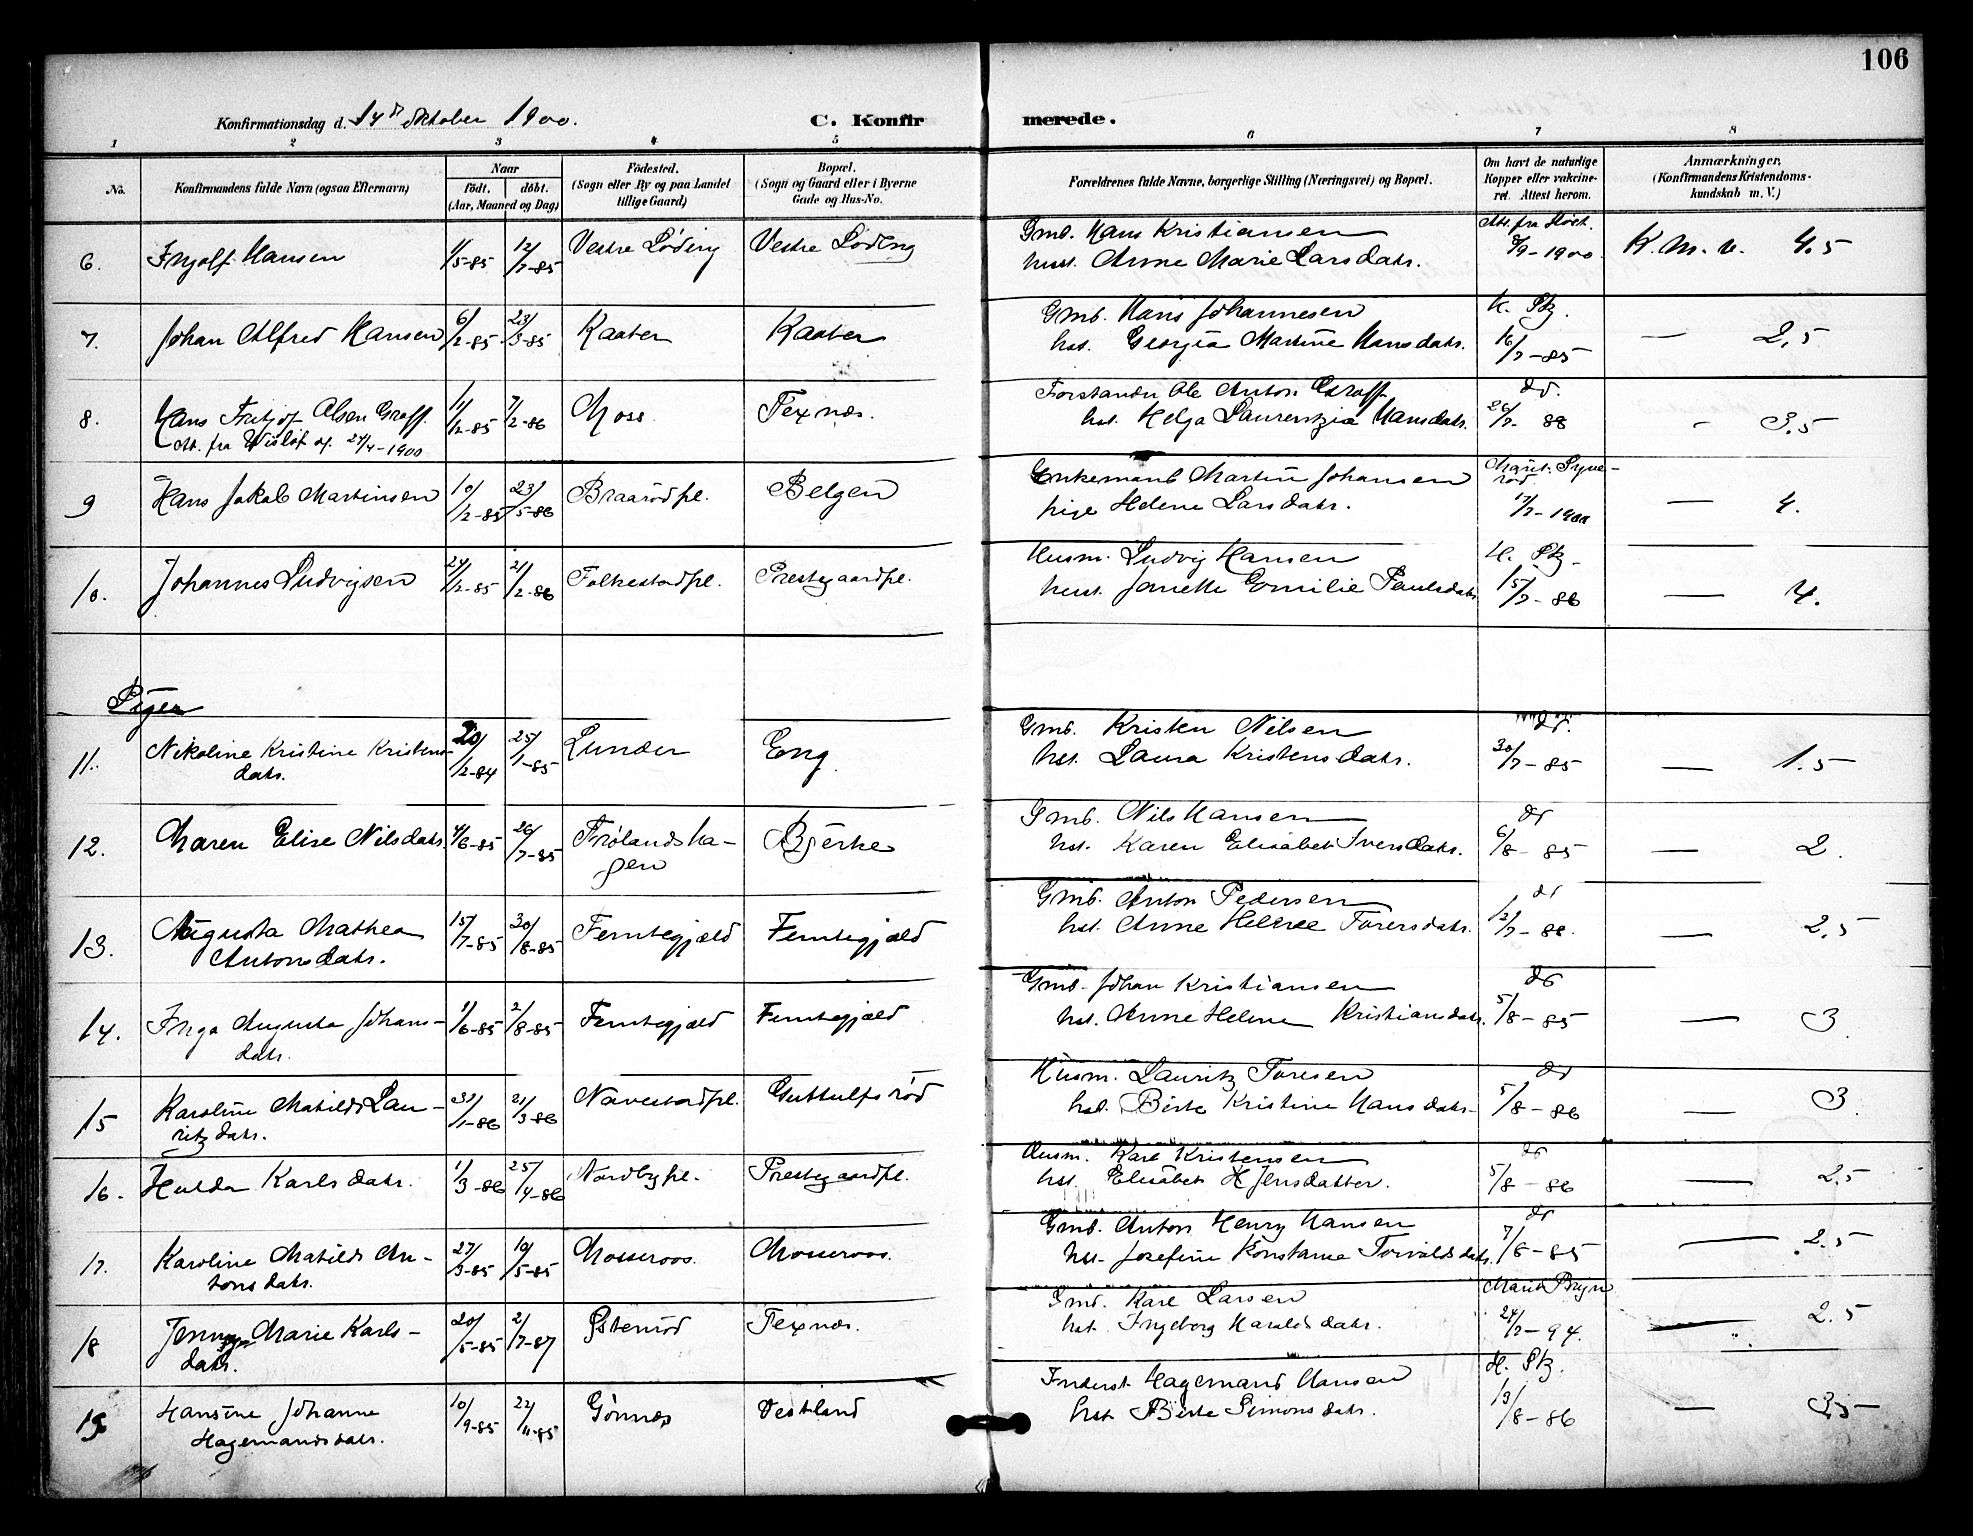 106
Konfirmationsdag d. 14de Oktober 1900.
C. Konfirmerede.
1 2 3 4 5 6 7 8
No.
Konfirmandens fulde Navn (ogsaa Efternavn)
Naar
födt. döbt.
(Aar, Maaned og Dag)
Födested.
(Sogn eller By og paa Landet
tillige Gaard)
Bopæl.
(Sogn og Gaard eller i Byerne
Gade og Hus-No.
Forældrenes fulde Navne, borgerlige Stilling (Næringsvei) og Bopæl.
Om havt de naturlige
Kopper eller vakcine-
ret. Attest herom.
Anmærkninger,
(Konfirmandens Kristendoms-
kundskab m. V.)
6. Ingolf Hansen 1/5-85 12/7-85 Vestre Löding Vestre Löding
Gmd. Hans Kristiansen
hust. Anne Marie Larsdatr.
8/9-1900. K. M. v. 4.5
7. Johan Alfred Hansen 6/2-85 23/3-85 Kaaten Kaaten
Gmd. Hans Johannesen
hst. Georgia Martine Hansdatr.
16/7-85 — 2,5
8. Hans Fritjof Olsen Graff. 11/12-85 7/2-86 Moss Texnæs.
Att. fra 24/4-1900
Forstander Ole Anton Graff
hst. Helga Laurentzia Hansdatr.
do. 26/7- 88 - 3.5
9 Hans Jakob Martinsen 10/12-85 23/5-86 Braarödpl. Belgen
Enkemand Martin Johansen
pige Helene Larsdatr.
17/7-1900 — 4.
10. Johannes Ludvigsen 24/12-85 21/2-86 Folkestadpl. Prestegaardpl.
Husm. Ludvig Hansen
hust. Janette Emilie Paulsdatr
H. Ptz. 15/7-86 — 4.
Piger
11. Nikoline Kristine Kristens-
datr. 20/12-84 25/1-85 Lunder Eng
Gmd. Kristen Nilsen
hst. Laura Kristensdatr.
do. 30/7-85 — 1.5
12. Maren Elise Nilsdatr. 4/6-85 26/7-85 Frölandsha-
gen Bjerke
Gmd. Nils Hansen
hst. Karen Elisabet Iversdatr.
do 6/8-85 — 2.
13. Augusta Mathea
Antonsdatr. 15/7-85 30/8-85 Femtegjæld Femtegjæld
Gmd. Anton Pedersen
hst. Anne Helene Torersdatr.
do 12/7-88. — 2,5
14. Inga Augusta Johans-
datr. 1/6-85 2/8-85 Femtegjæld Femtegjæld
Gmd. Johan Kristiansen
hst. Anne Helene Kristiansdatr.
do 5/8-85 — 3
15 Karoline Matilde Lau-
ritzdatr. 1-86 21/3-86 Navestadpl. Guttulfsröd
Husm. Lauritz Toresen
hst. Birte Kristine Hansdatr.
do 5/8-86 — 3.
16. Hulda Karlsdatr. 1/3-86 25/4-86 Nordbypl. Prestegaardpl.
Husm. Karl Kristensen
hst. Elisabet H Jensdatter.
do 5/8-86 — 2.5
17. Karoline Matilde An-
tonsdatr. 27/3-85 10/5-85 Mosseroos. Mosseroos.
Gmd. Anton Henry Hansen
hst. Josefine Konstanse Torvaldsdatr.
do 7/8-85 — 2.5
18 Jenny Marie Karls-
datr. 20/5-85 2/7-87 Östenröd Texnæs.
Gmd. Karl Larsen
hst. Ingeborg Haraldsdatr.
24/7-94. — 2.5
19 Hansine Johanne
Hagemandsdatr. 10/9-85 22/11-85 Gönnes Vestland
Inderst. Hagemand Hansen
hst. Birte Simonsdatr.
H. Ptz. 13/8-86 — 3,5